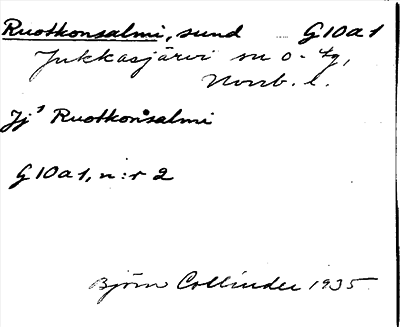 Ruotkonsalmi, sund G10a1
Jukkasjärvi sn o. tg,
Norrb. l.
Jj³ Ruotkonsalmi
G10a1, n:r 2
Björn Collinder 1935